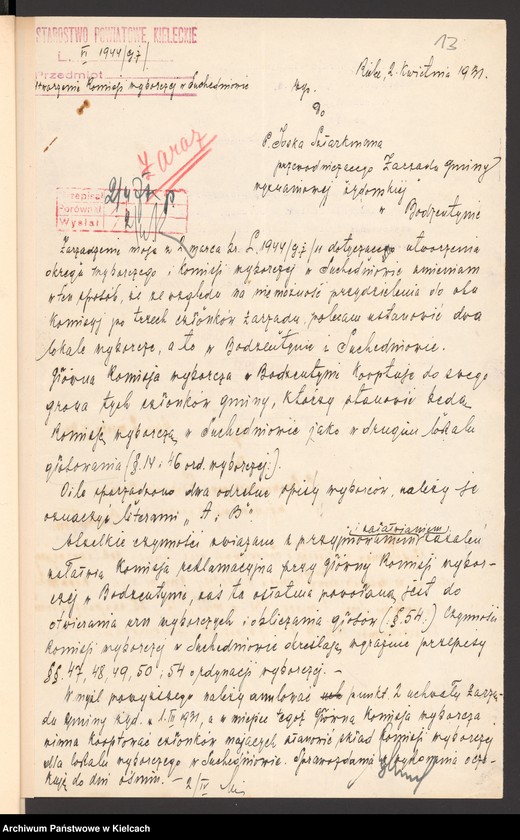 13
STAROSTWO POWIATOWE KIELECKIE
L. VI 1944/97/
Przedmiot
Utworzenie Komisji wyborczej w Suchedniowie
Kielce, 2. kwietnia 1931.
Do
P. Joska Sztarkmana
przewodniczącego Zarządu Gminy
wyznaniowej żydowskiej
w Bodzentynie
Zaraz
Przepisał
Porównał
Wysłał
Zarządzenie moje z marca br. L. 1944/97/II dotyczącego utworzenia
okręgu wyborczego i Komisji wyborczej w Suchedniowie zmieniam
w ten sposób, że ze względu na niemożność przydzielenia do obu
Komisyj po trzech członków zarządu, polecam ustanowić dwa
lokale wyborcze, a to w Bodzentynie i Suchedniowie.
Główna Komisja wyborcza w Bodzentynie kooptuje do swego
grona tych członków gminy, którzy stanowić będą
Komisję wyborczą w Suchedniowie jako w drugim lokalu
głosowania (§.14 i 46 ord. wyborczej:).
O ile sporządzono dwa odrębne spisy wyborców, należy je
oznaczyć literami "A i B"
Wszelkie czynności związane z przyjmowaniem i załatwianiem zażaleń
załatwia Komisja reklamacyjna przy Głównej Komisji wybor-
czej w Bodzentynie, zaś ta ostatnia powołana jest do
otwierania urn wyborczych i obliczania głosów (: §.54:) Czynności
Komisji wyborczej w Suchedniowie określają wyraźnie przepisy
§§. 47, 48, 49, 50 i 54 ordynacji wyborczej. –
W myśl powyższego należy anulować punkt 2 uchwały Zarzą-
du Gminy żyd. z 1.III 1931, a w miejsce tegoż Główna Komisja wyborcza
winna kooptować członków mających stanowić skład Komisji wyborczej
dla lokalu wyborczego w Suchedniowie. Sprawozdania z wykonania ocze-
kuję do dni ośmiu. – 2/IV
Archiwum Państwowe w Kielcach